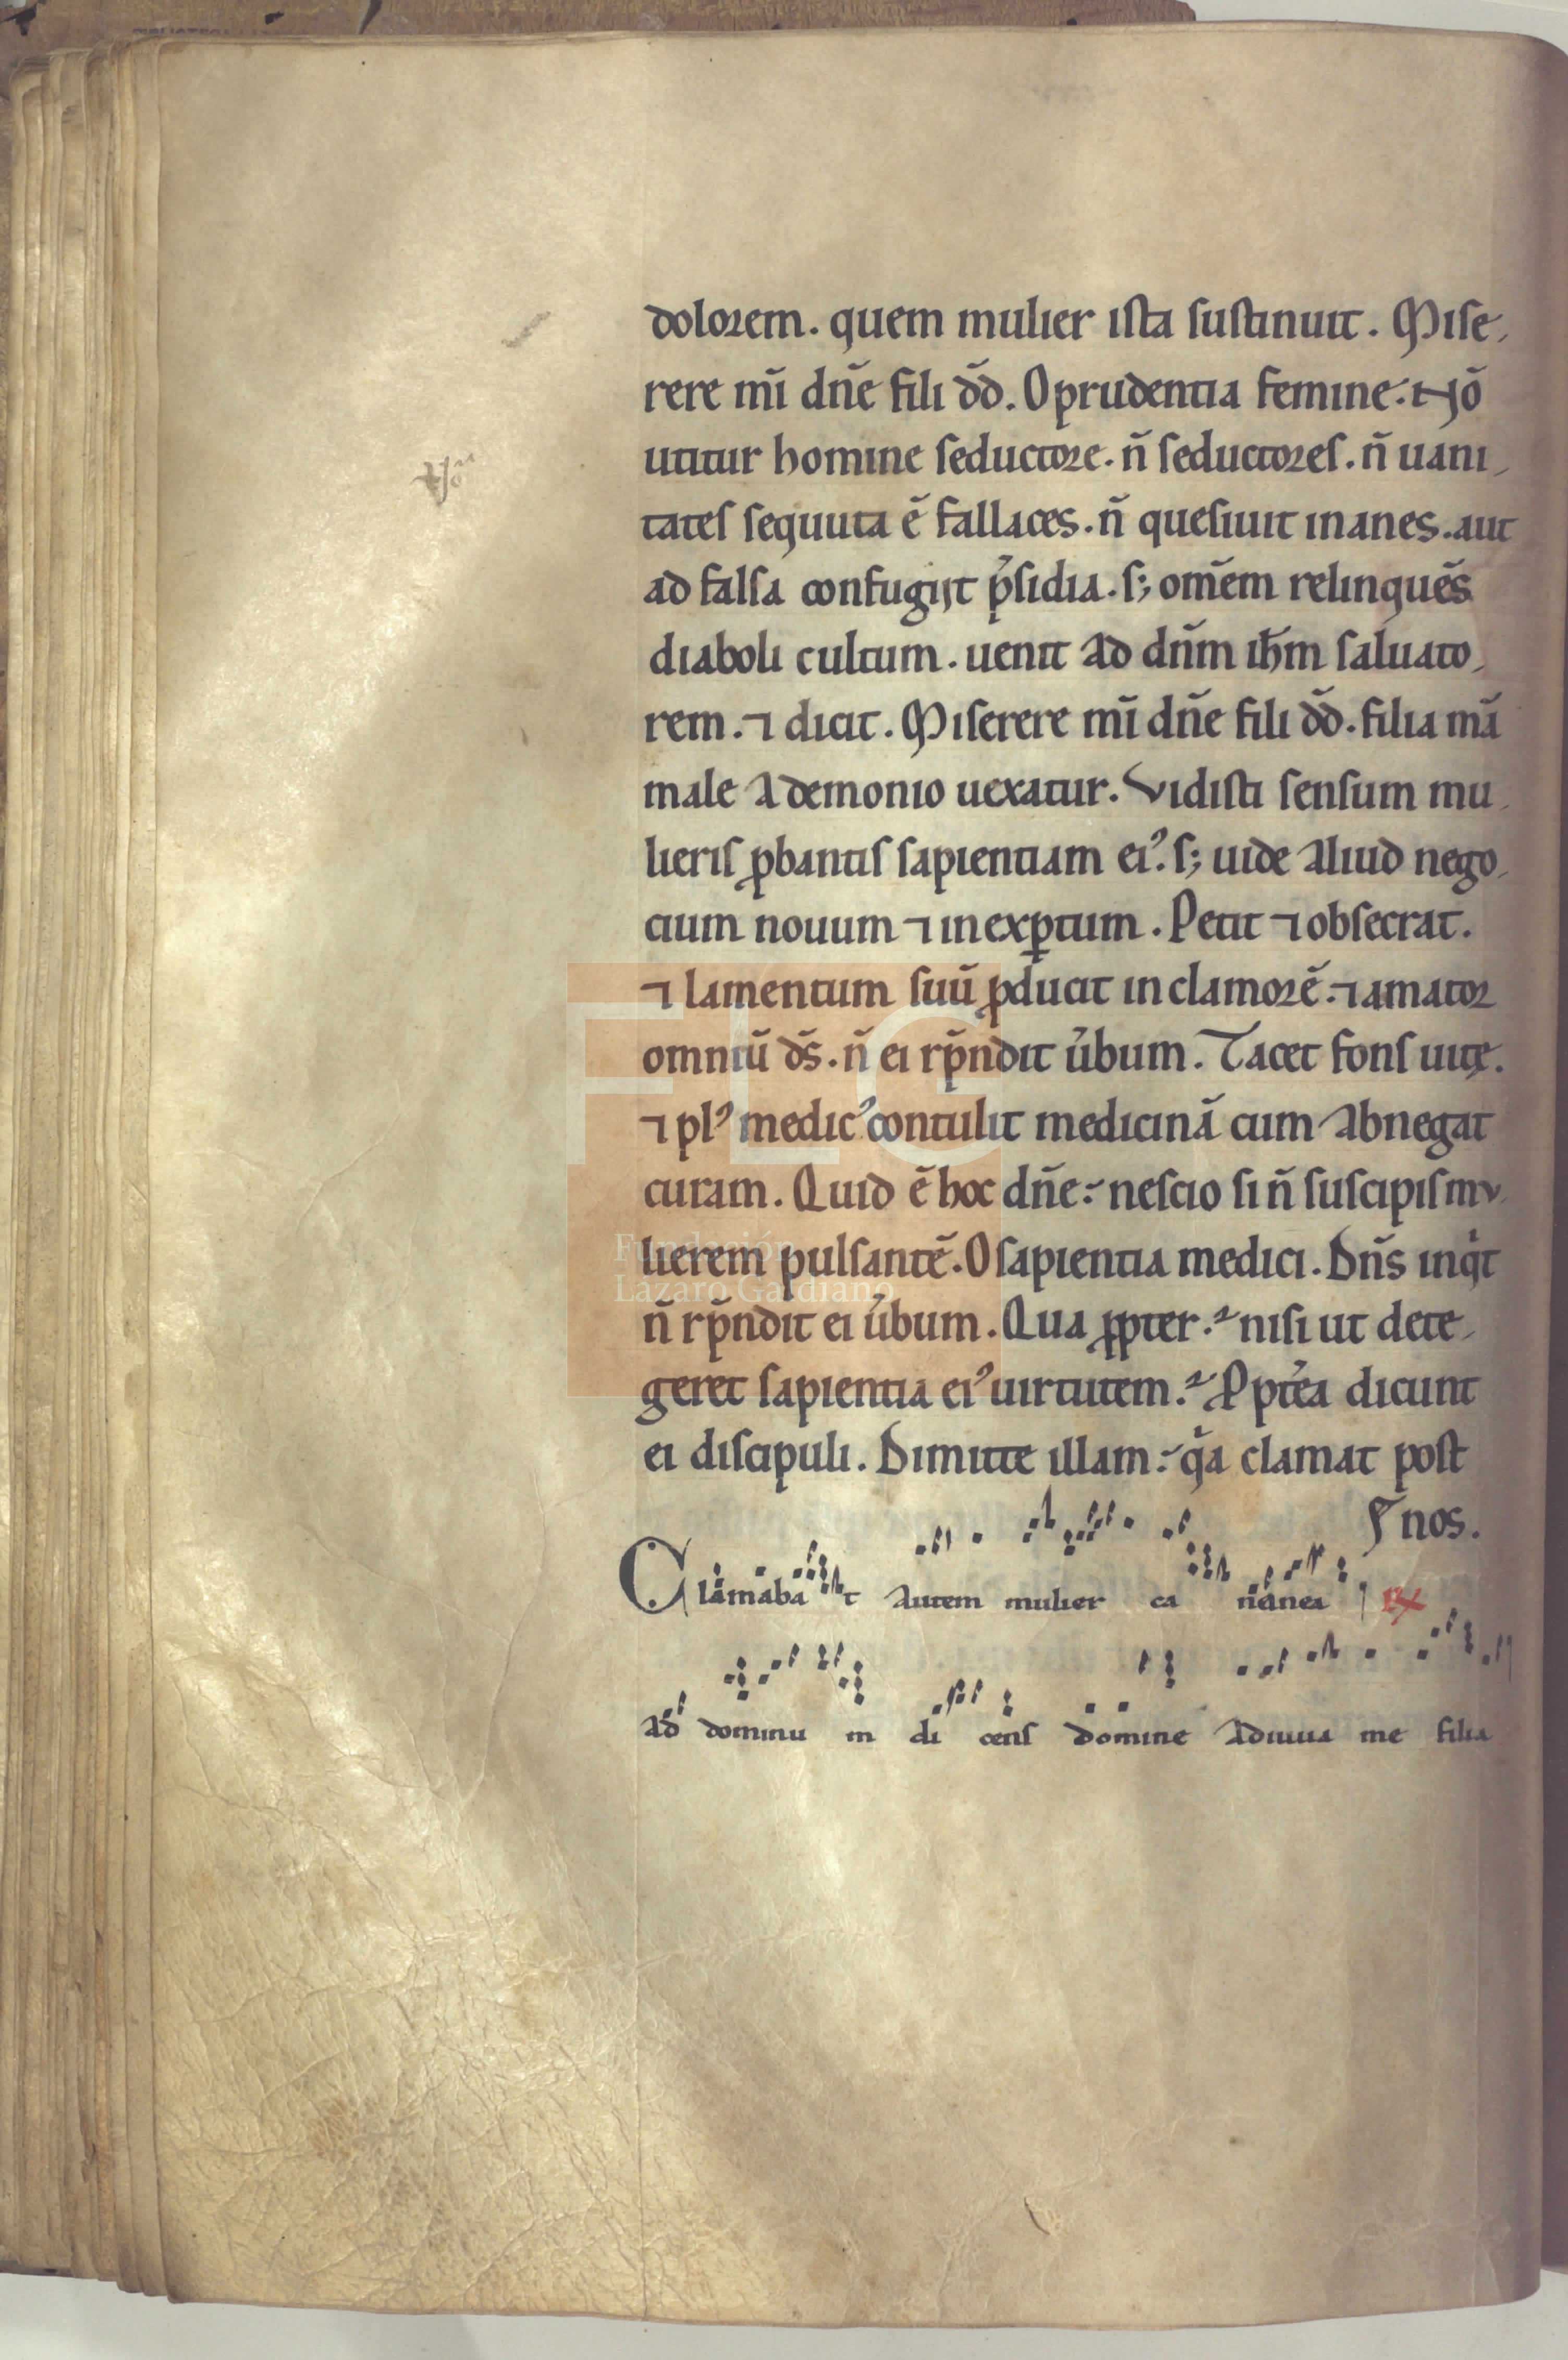 dolorem. quem mulier ista sustinuit. Mise,
rere mī dn̄e fili dd̄. O prudentia femine. Nō
utitur homine seductore. n̄ seductores. n̄ uani,
tates sequuta ē fallaces. n̄ quesiuit inanes. aut
ad falsa confugijt p̄sidia. s; om̄em relinquēs
diaboli cultum. uenit ad dn̄m ih̄m saluato,
rem. ⁊ dicit. Miserere mī dn̄e fili dd̄. filia mā
male a demonio uexatur. Vidisti sensum mu,
lieris ꝓbantis sapientiam ei᾿. s; uide aliud nego,
cium nouum ⁊ inexꝑtum. Petit ⁊ obsecrat.
⁊ lamentum suū ꝓducit in clamorē. ⁊ amator
omniū ds̄. n̄ ei rp̄ndit u̓bum. Tacet fons uitę.
⁊ pl᾿ medic᾿ contulit medicinā cum abnegat
curam. Quid ē hoc dn̄e. nescio si n̄ suscipis mu,
lierem pulsantē. O sapientia medici. Dn̄s inqͥt
n̄ rp̄ndit ei u̓bum. Qua ꝓpter. nisi ut dete,
geret sapientia ei᾿ uirtutem. Ppt̓ea dicunt
ei discipuli. Dimitte illam. qͣa clamat post
nos.
Clamaba t autem mulier ca nanea
ad dominu m di cens domine adiuua me filia
Fundación
Lázaro Galdiano
FLG